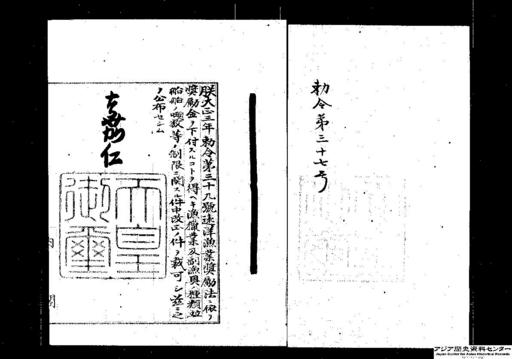 勅令第三十七号
朕大正三年勅令第三十九號遠洋漁業奬勵法ニ依リ
奬勵金ノ下付スルコトヲ得ヘキ漁獵業及副漁具ノ種類竝
船舶ノ噸數等ノ制限ニ關スル件中改正ノ件ヲ裁可シ玆ニ之
ノ公布セシム
嘉仁
天皇
御璽
内閣
アジア歴史資料センター
Japan Center for Asian Historical Records